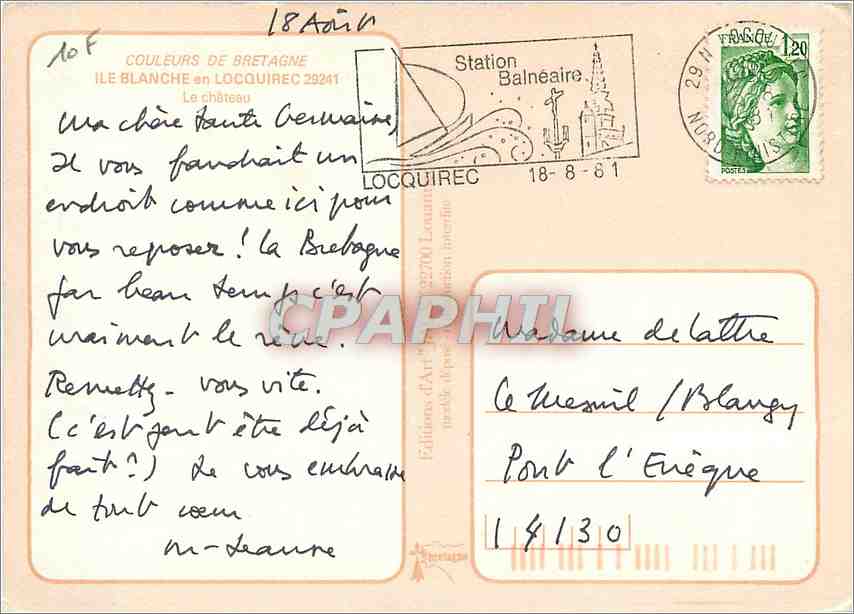 18 Août
10 F
COULEURS DE BRETAGNE
ILE BLANCHE en LOCQUIREC 29241
Le château
Ma chère tante Germaine,
Il vous faudrait un
endroit comme ici pour
vous reposer ! La Bretagne
par beau temps c'est
vraiment le rêve.
Remettez-vous vite.
(c'est peut être déjà
fait ?) Je vous embrasse
de tout cœur
M-Jeanne
Station
Balnéaire
LOCQUIREC 18-8-81
29 N
NORD FINIST
FRANCE 1,20
POSTES
Editions d'Art 22700 Louannec
modèle déposé interdite
CPAPHIL
Madame delattre
Le Mesnil / Blangy
Pont l'Evêque
14130
bretagne